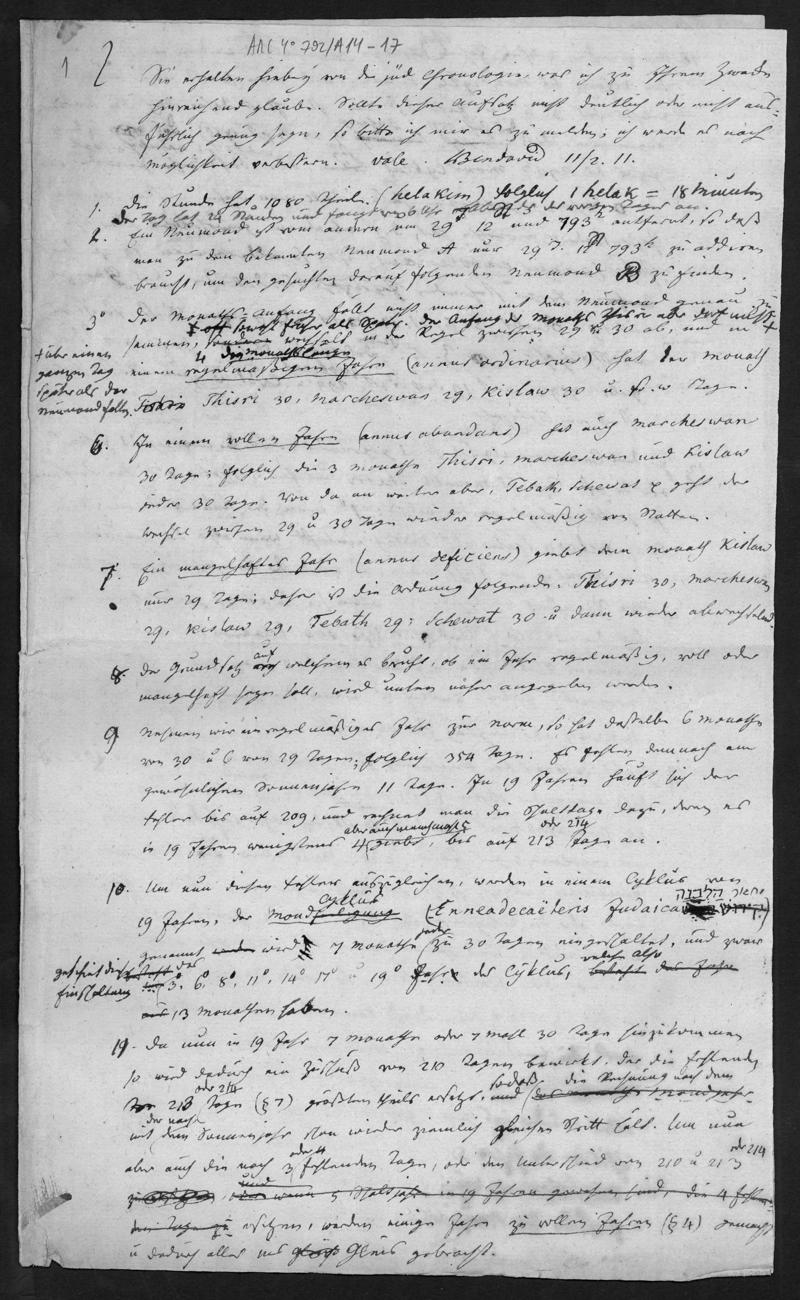 ARC 4° 792/A14-17
1
Sie erhalten hiebey von die jüd Chronologie, was ich zu Ihrem Zwecke
hinreichend glaube. Sollte dieser Aufsatz nicht deutlich oder nicht aus-
führlich genug seyn, so bitte ich mir es zu melden; ich werde es nach
Möglichkeit verbessern. Vale. Bendavid 11/2. 11.
1. Die Stunde hat 1080 Theile. (helakim) folglich 1 helak = 18 Minuten
der Tag hat 24 Stunden und fängt um 6 Uhr Abends des vorigen Tages an.
2. Ein Neumond ist vom andern um 29 12 und 793 entfernt, so daß
man zu dem bekannten Neumond A nur 29 T. 12 793 zu addiren
braucht, um den gesuchten darauf folgenden Neumond B zu finden.
3° Der Monaths-Anfang fällt nicht immer mit dem Neumond genau zu
oft sowohl früher als später. Der Anfang des Monaths Thisri aber darf nicht +
sammen, wechselt in der Regel zwischen 29 u 30 ab, und in
+ über einen
ganzen Tag
später als der
Neumond fallen.
4 die Monathslänge
einem regelmäßigen Jahre (annus ordinarius) hat der Monath
Thisri 30, Marcheswan 29, Kislaw 30 u. s. w Tage.
6. In einem vollen Jahre (annus abundans) hat auch Marcheswan
30 Tage; folglich die 3 Monathe Thisri, Marcheswan und Kislaw
jeder 30 Tage. Von da an weiter aber, Tebath, Schewat geht der
Wechsel zwischen 29 u 30 Tagen wieder regelmäßig von Statten.
7. Ein mangelhaftes Jahr (annus deficiens) giebt dem Monath Kislaw
nur 29 Tage; daher ist die Ordnung folgende. Thisri 30, Marcheswan
29, Kislaw 29, Tebath 29; Schewat 30 u dann wieder abwechselnd.
8. Der Grundsatz auf welchem es beruht, ob ein Jahr regelmäßig, voll oder
mangelhaft seyn soll, wird unten näher angegeben werden.
9 Nehmen wir ein regelmäßiges Jahr zur Norm, so hat dasselbe 6 Monathe
von 30 u 6 von 29 Tagen; folglich 354 Tage. Es fehlen demnach am
gewöhnlichen Sonnenjahre 11 Tage. In 19 Jahren häuft sich der
Fehler bis auf 209, und rechnet man die Schalttage dazu, deren es
aber auch manchmal 5 oder 214
in 19 Jahren wenigstens 4 giebt, bis auf 213 Tage an.
10. Um nun diesen Fehler auszugleichen, werden in einem Cyklus von
Cyklus מחזור הלבנה
19 Jahren, der Mond (Enneadecaëteris Judaica)
genannt wird 7 Monathe jeder zu 30 Tagen eingeschaltet, und zwar
geschieht diese
Einschaltung
das 3° 6° 8° 11° 14° 17° u 19° Jahr des Cyklus, welche also
13 Monathe haben.
Da nun in 19 Jahr 7 Monathe oder 7 mahl 30 Tage hinzukommen
so wird dadurch ein Zuschuß von 210 Tagen bewirkt, der die fehlenden
oder 214 so daß die Rechnung nach dem
213 Tage (§ 7) größten theils ersetzt, und
der nach
mit dem Sonnenjahr schon wieder ziemlich gleichen Schritt hält. Um nun
oder 4 oder 214
aber auch die noch 3 fehlenden Tage, oder den Unterschied von 210 u 213
und
oder wenn 5 Schaltjahr in 19 Jahren gewesen sind, die 4
zu ersetzen, werden einige Jahre zu vollen Jahren (§ 4) gemacht
u dadurch alles ins Gleis gebracht.